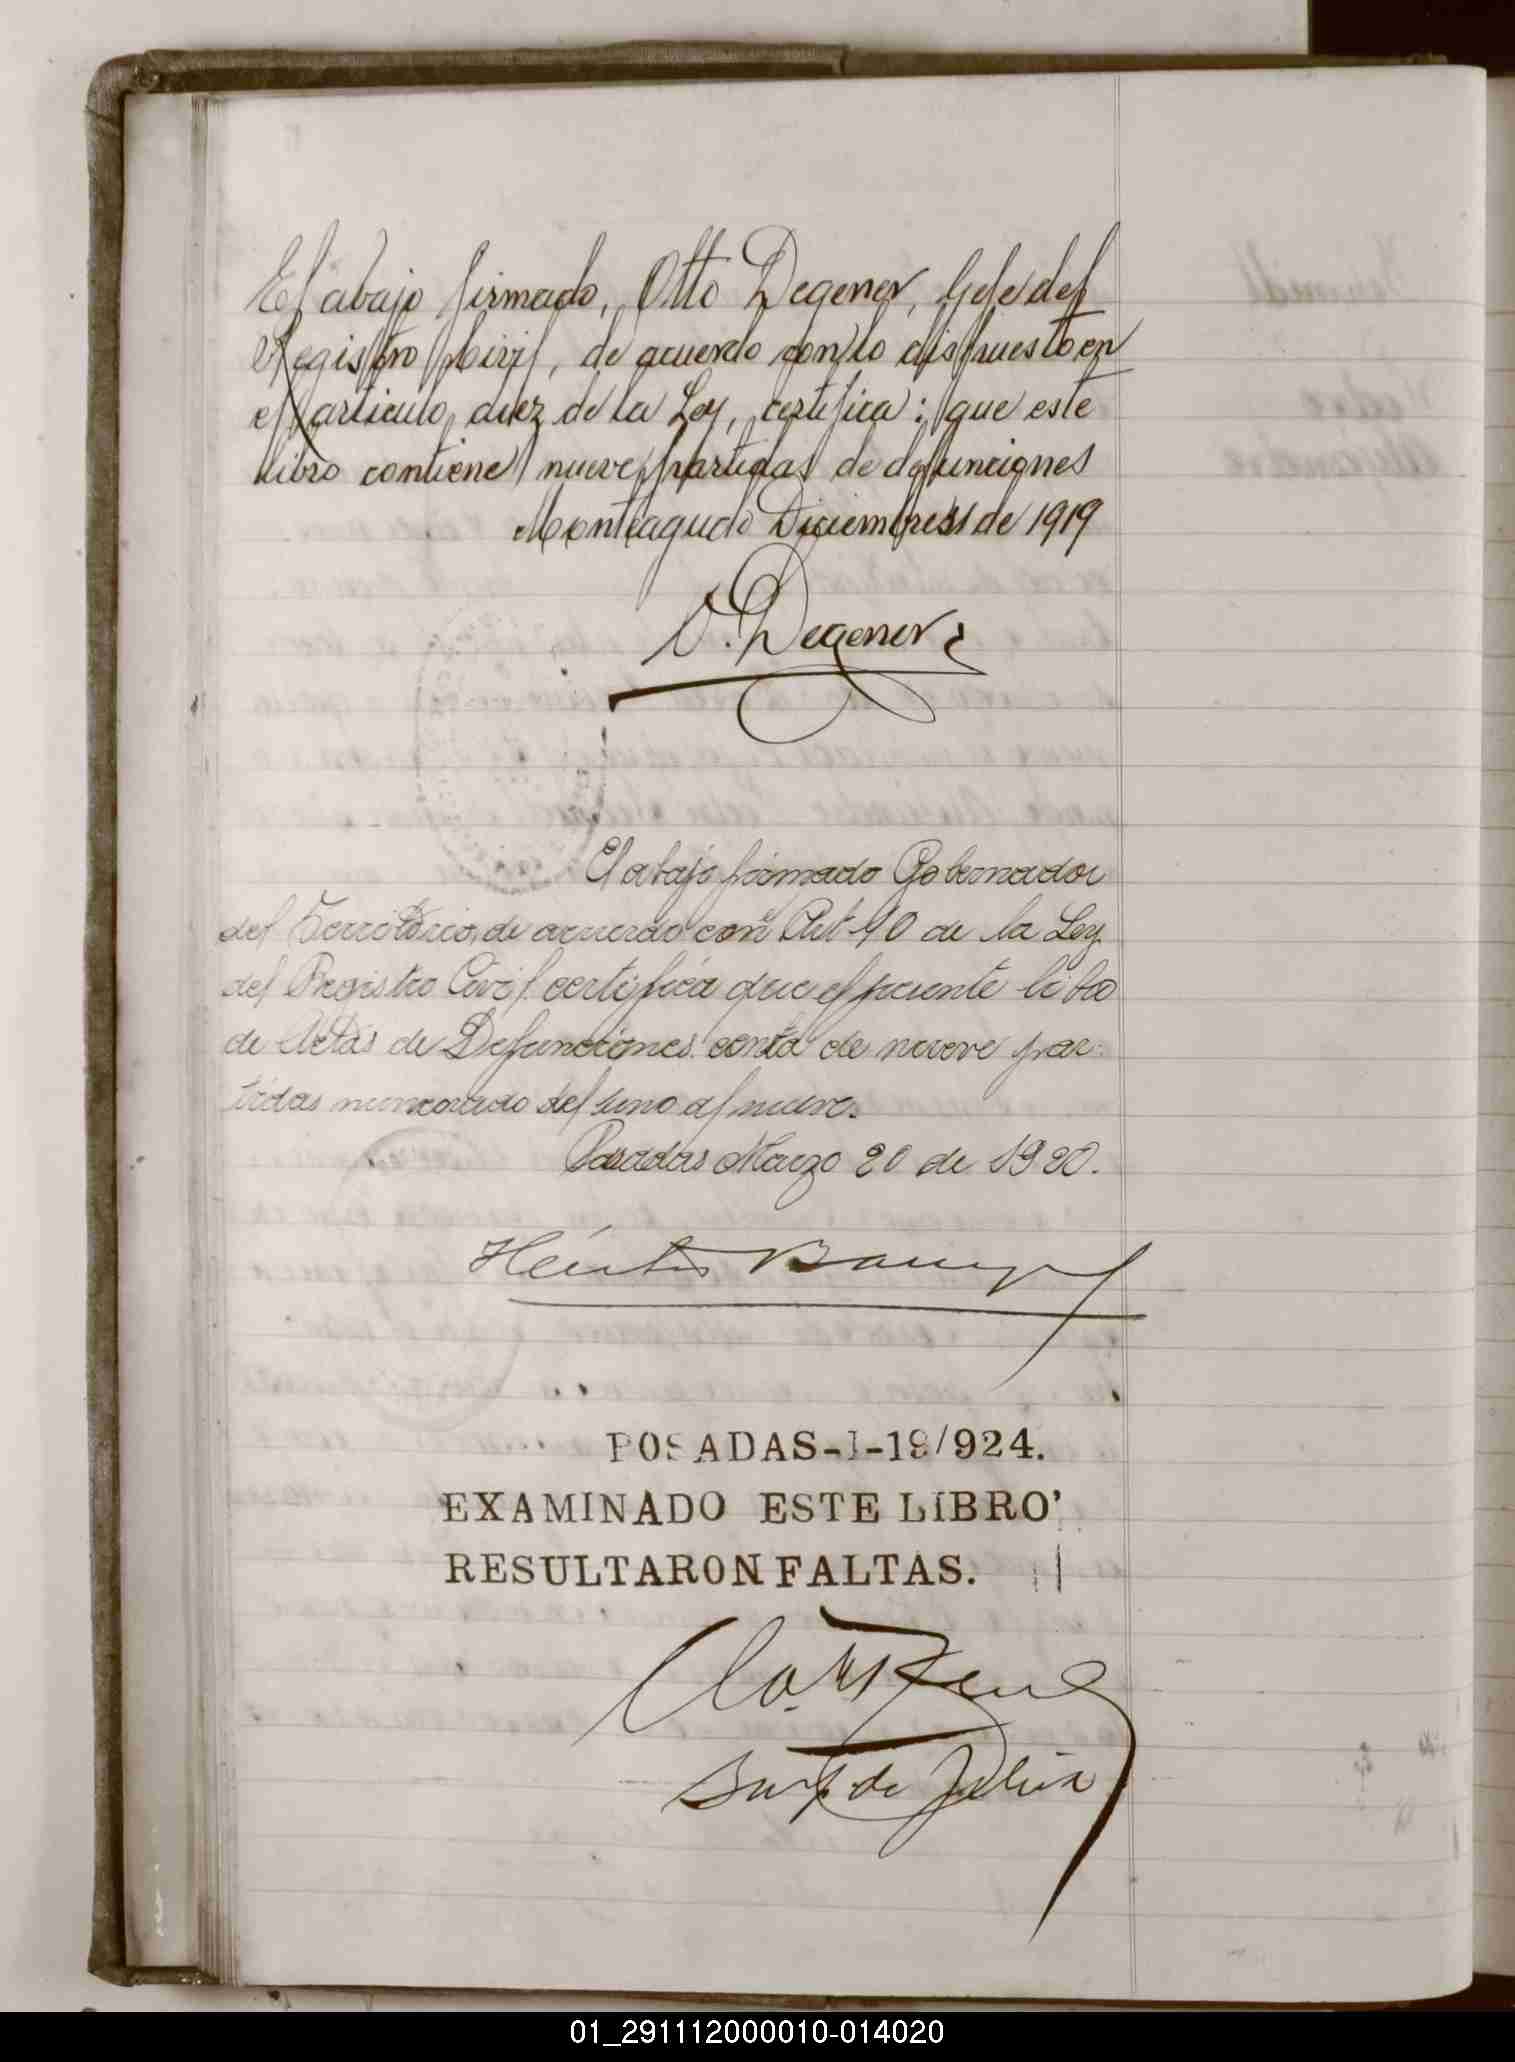 El abajo firmado, Otto Degener, Jefe del
Registro Civil, de acuerdo con lo dispuesto en
el articulo diez de la Ley, certifica: que este
libro contiene nueve partidas de defunciones
Monteagudo Diciembre 31 de 1919
O. Degener
El abajo firmado Gobernador
del Territorio, de acuerdo con el Art 10 de la Ley
del Registro Civil certifica que el presente libro
de Actas de Defunciones consta de nueve par-
tidas numerado del uno al nueve.
Posadas Marzo 20 de 1920.
Héctor Barreyro
POSADAS-1-19/924.
EXAMINADO ESTE LIBRO
RESULTARON FALTAS.
01_291112000010-014020